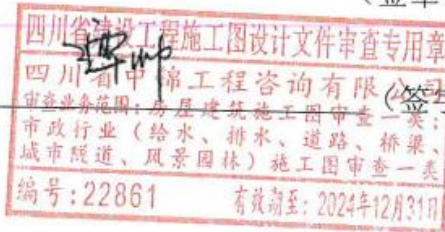 四川省建设工程施工图设计文件审查专用章
四川省中锦工程咨询有限公司
(签字
审查业务范围：房屋建筑施工图审查一类、
市政行业（给水、排水、道路、桥梁、
城市隧道、风景园林）施工图审查一类
编号：22861 有效期至：2024年12月31日